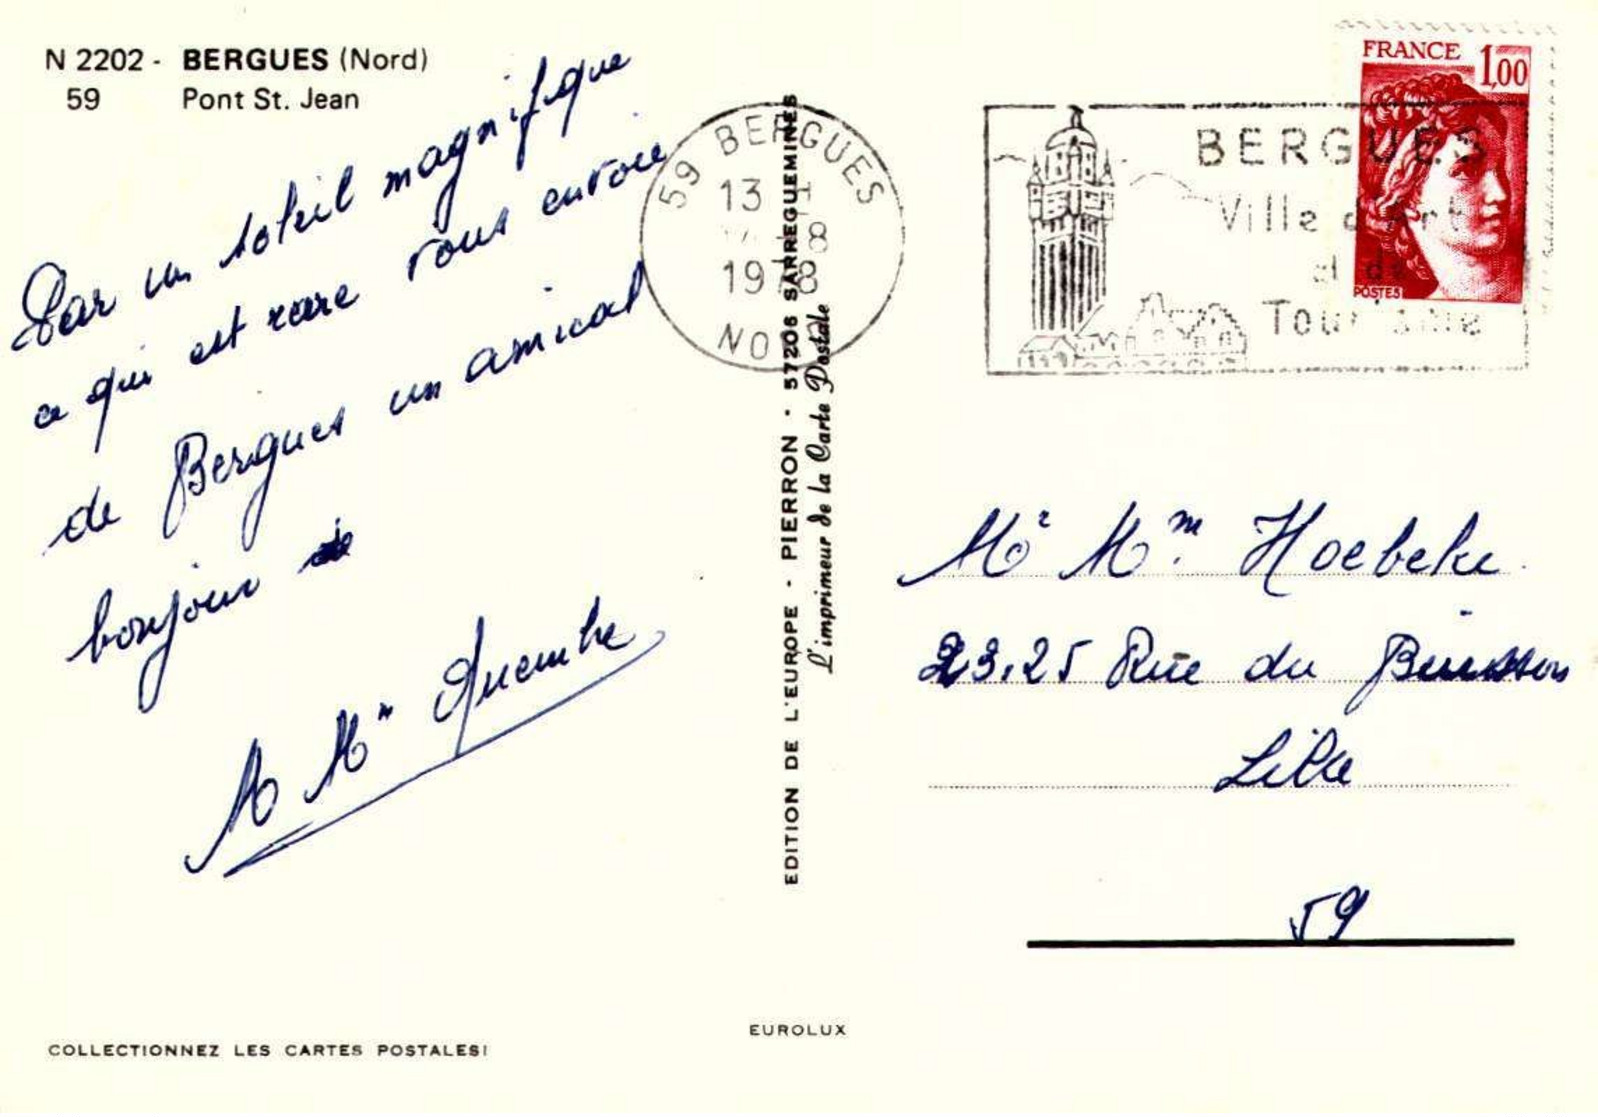 N 2202 - BERGUES (Nord)
59 Pont St. Jean
Par un soleil magnifique
ce qui est rare vous envoie
de Bergues un amical
bonjour
M Mm
59 BERGUES
13 H
8
1978
NO
BERGUES
Ville d'Art
et de
Tourisme
FRANCE 1,00
POSTES
EDITION DE L'EUROPE - PIERRON - 57206 SARREGUEMINES
L'imprimeur de la Carte Postale
Mr Mm. Hoebeke
23.25 Rue du Buisson
Lille
59
EUROLUX
COLLECTIONNEZ LES CARTES POSTALES!